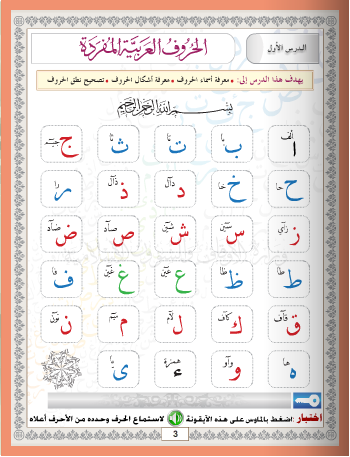 الدرس الأول
الحُرُوفُ العَرَبِيَّةُ المُفْرَدَةُ
يهدف هذا الدرس إلى: • معرفة أسماء الحروف • معرفة أشكال الحروف • تصحيح نطق الحروف
بِسْمِ اللهِ الرَّحْمٰنِ الرَّحِيْمِ
ألف ا با ب تا ت ثا ث جيم ج
حا ح خا خ دال د ذال ذ را ر
زاي ز سين س شين ش صاد ص ضاد ض
طا ط ظا ظ عين ع غين غ فا ف
قاف ق كاف ك لام ل ميم م نون ن
ها ه واو و همزة ء يا ى
اختبار: اضغط بالماوس على هذه الأيقونة لاستماع الحرف وحدده من الأحرف أعلاه
3